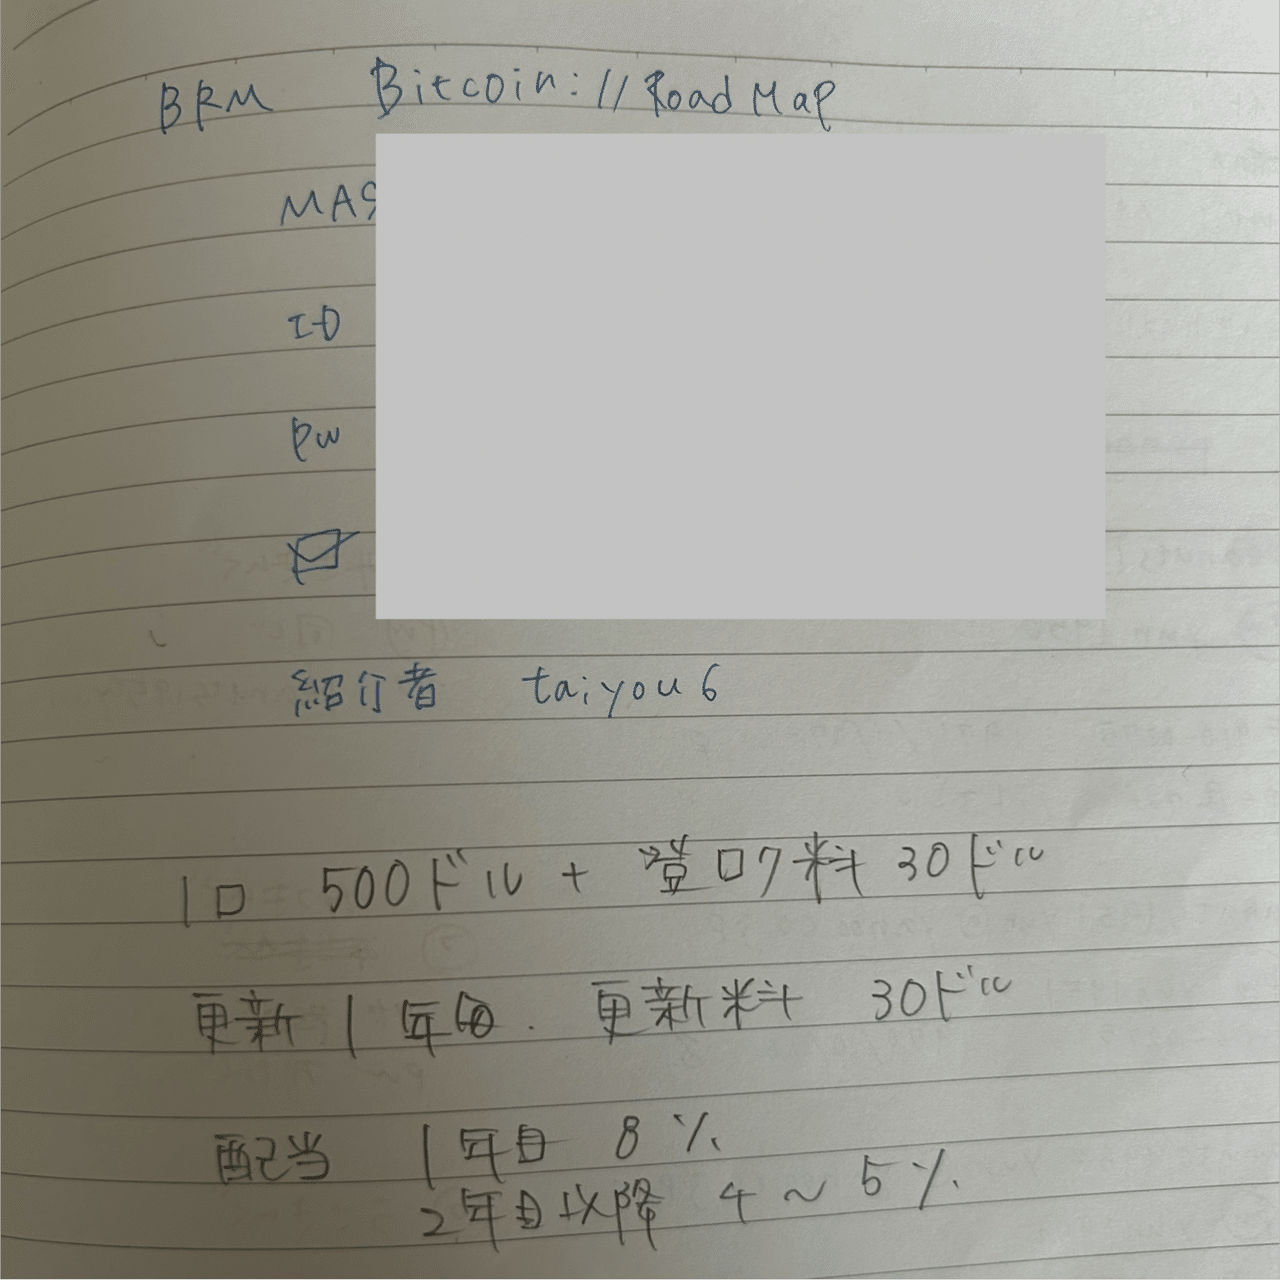 BRM Bitcoin:// Road Map
MAS
ID
PW
紹介者 taiyou6
1口 500ドル + 登ロク料 30ドル
更新 1年毎. 更新料 30ドル
配当 1年目 8%
2年目以降 4~5%